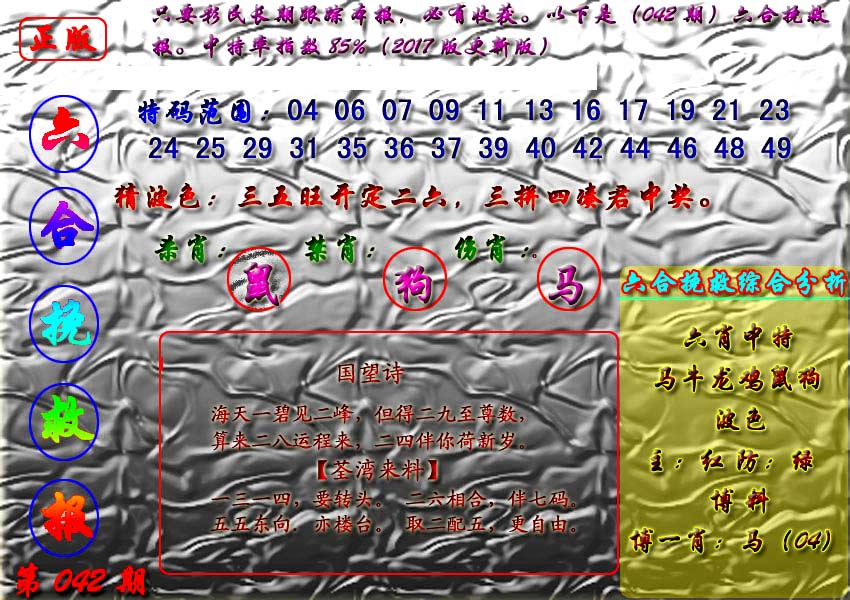 正版
只要彩民长期跟踪本报，必有收获。以下是（042 期）六合挽救
报。中特率指数 85%（2017 版更新版）
六
合
挽
救
报
第 042 期
特码范围：04 06 07 09 11 13 16 17 19 21 23
24 25 29 31 35 36 37 39 40 42 44 46 48 49
猜波色：三五旺开定二六，三拼四凑君中奖。
杀肖：鼠 禁肖：狗 伤肖：马
国望诗
海天一碧见二峰，但得二九至尊数，
算来二八运程来，二四伴你荷新岁。
【荃湾来料】
一三一四，要转头。 二六相合，伴七码。
五五东向. 亦楼台。 取二配五，更自由。
六合挽救综合分析
六肖中特
马牛龙鸡鼠狗
波色
主：红 防：绿
博料
博一肖：马（04）